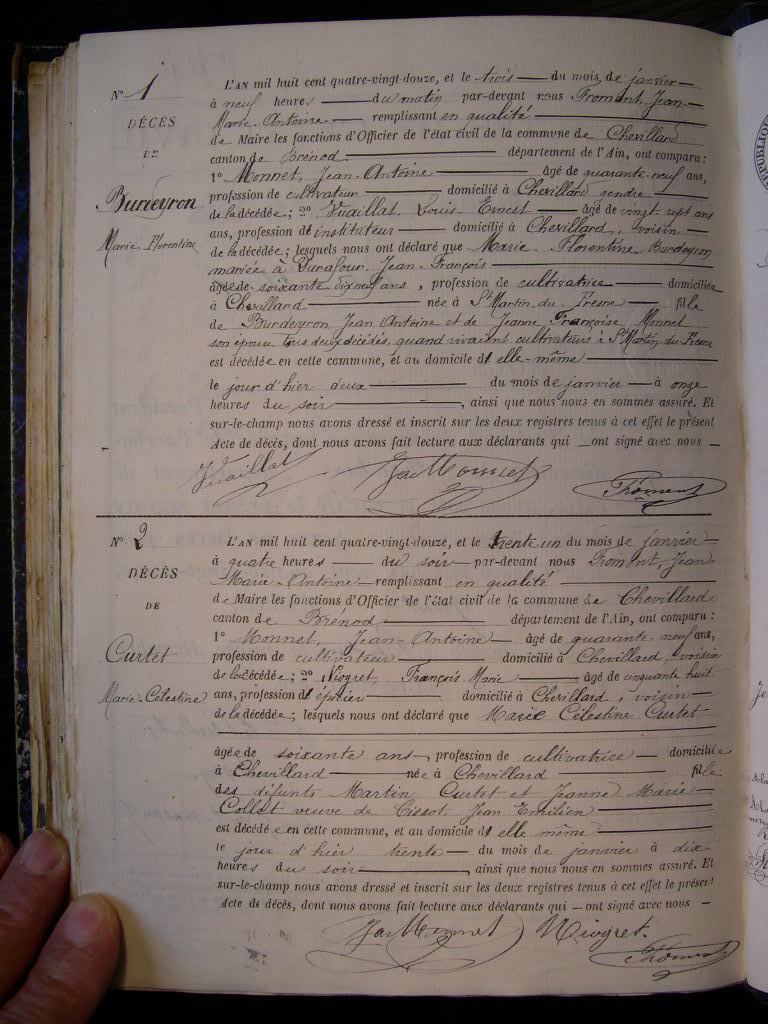 N° 1
DÉCÈS
DE
Burdeyron
Marie-Florentine
L'AN mil huit cent quatre-vingt-douze, et le trois du mois, de janvier
à neuf heures du matin par-devant nous Fromont, Jean-
Marie-Antoine remplissant en qualité
de Maire les fonctions d'Officier de l'état civil de la commune de Chevillard
canton de Brénod département de l'Ain, ont comparu :
1° Monnet, Jean-Antoine âgé de quarante-neuf ans,
profession de cultivateur domicilié à Chevillard gendre
de la décédée ; 2° Vuaillat, Louis Ernest âgé de vingt-sept ans
ans, profession d'instituteur domicilié à Chevillard, voisin
de la décédée ; lesquels nous ont déclaré que Marie-Florentine, Burdeyron
mariée à Durafour, Jean-François
âgée de soixante-dix neuf ans, profession de cultivatrice domiciliée
à Chevillard née à St Martin-du-Fresne fille
de Burdeyron Jean Antoine et de Jeanne Françoise Monnet
son épouse tous deux décédés, quand vivaient cultivateurs à St Martin-du-Fresne
est décédée en cette commune, et au domicile d'elle-même
le jour d'hier deux du mois de janvier à onze
heures du soir, ainsi que nous nous en sommes assuré. Et
sur-le-champ nous avons dressé et inscrit sur les deux registres tenus à cet effet le présent
Acte de décès, dont nous avons fait lecture aux déclarants qui ont signé avec nous
Vuaillat Ja Monnet Froment
N° 2
DÉCÈS
DE
Curtet
Marie-Célestine
L'AN mil huit cent quatre-vingt-douze, et le trente-un du mois de janvier
à quatre heures du soir par-devant nous Fromont, Jean-
Marie-Antoine remplissant en qualité
de Maire les fonctions d'Officier de l'état civil de la commune de Chevillard
canton de Brénod département de l'Ain, ont comparu :
1° Monnet, Jean-Antoine âgé de quarante-neuf ans,
profession de cultivateur domicilié à Chevillard, voisin
de la décédée ; 2° Niogret, François Marie âgé de cinquante huit
ans, profession d'épicier domicilié à Chevillard, voisin
de la décédée ; lesquels nous ont déclaré que Marie Célestine Curtet
âgée de soixante ans, profession de cultivatrice domiciliée
à Chevillard née à Chevillard fille
des défunts Martin Curtet et Jeanne Marie
Collet veuve de Cissot, Jean Emilien
est décédée en cette commune, et au domicile d'elle même
le jour d'hier trente du mois de janvier à dix
heures du soir, ainsi que nous nous en sommes assuré. Et
sur-le-champ nous avons dressé et inscrit sur les deux registres tenus à cet effet le présent
Acte de décès, dont nous avons fait lecture aux déclarants qui ont signé avec nous
Ja Monnet Niogret. Froment